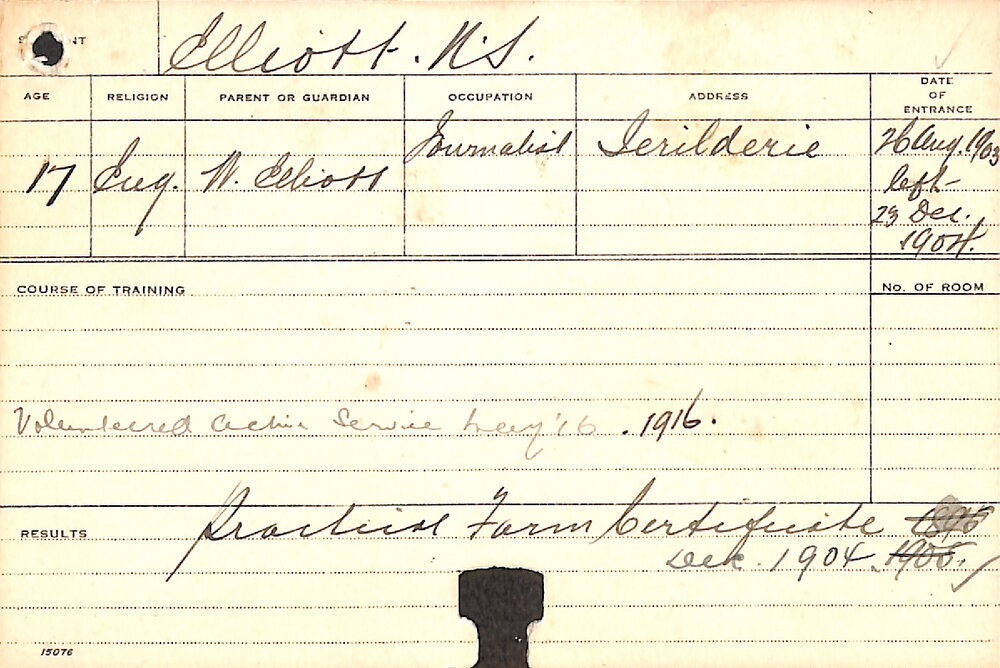 Elliott. N.S.
AGE RELIGION PARENT OR GUARDIAN OCCUPATION ADDRESS DATE OF ENTRANCE
17 Eng. W. Elliott Journalist Jerilderie 26 Aug. 1903
left
23 Dec.
1904.
COURSE OF TRAINING No. OF ROOM
Volunteered Active Service May '16 . 1916.
RESULTS Practical Farm Certificate 1895
Dec. 1904. 1905.
15076